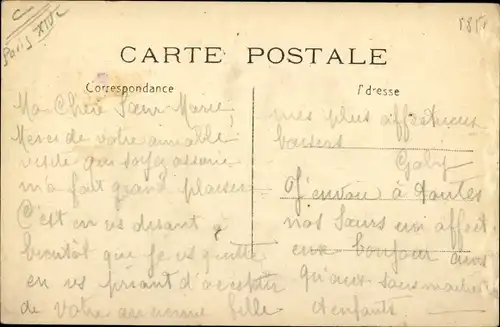 C
Paris XIVe
CARTE POSTALE
Correspondance
Adresse
Ma Chère Sœur Marie,
Merci de votre aimable
visite qui soyez assurée
m'a fait grand plaisir
C'est en vs disant à
bientôt que je vs quitte
en vs priant d'accepter
de votre ancienne fille
mes plus affectueux
baisers
Gaby
J'envoie à toutes
nos Sœurs un affect
eux bonjour ainsi
qu'aux
d'enfants.